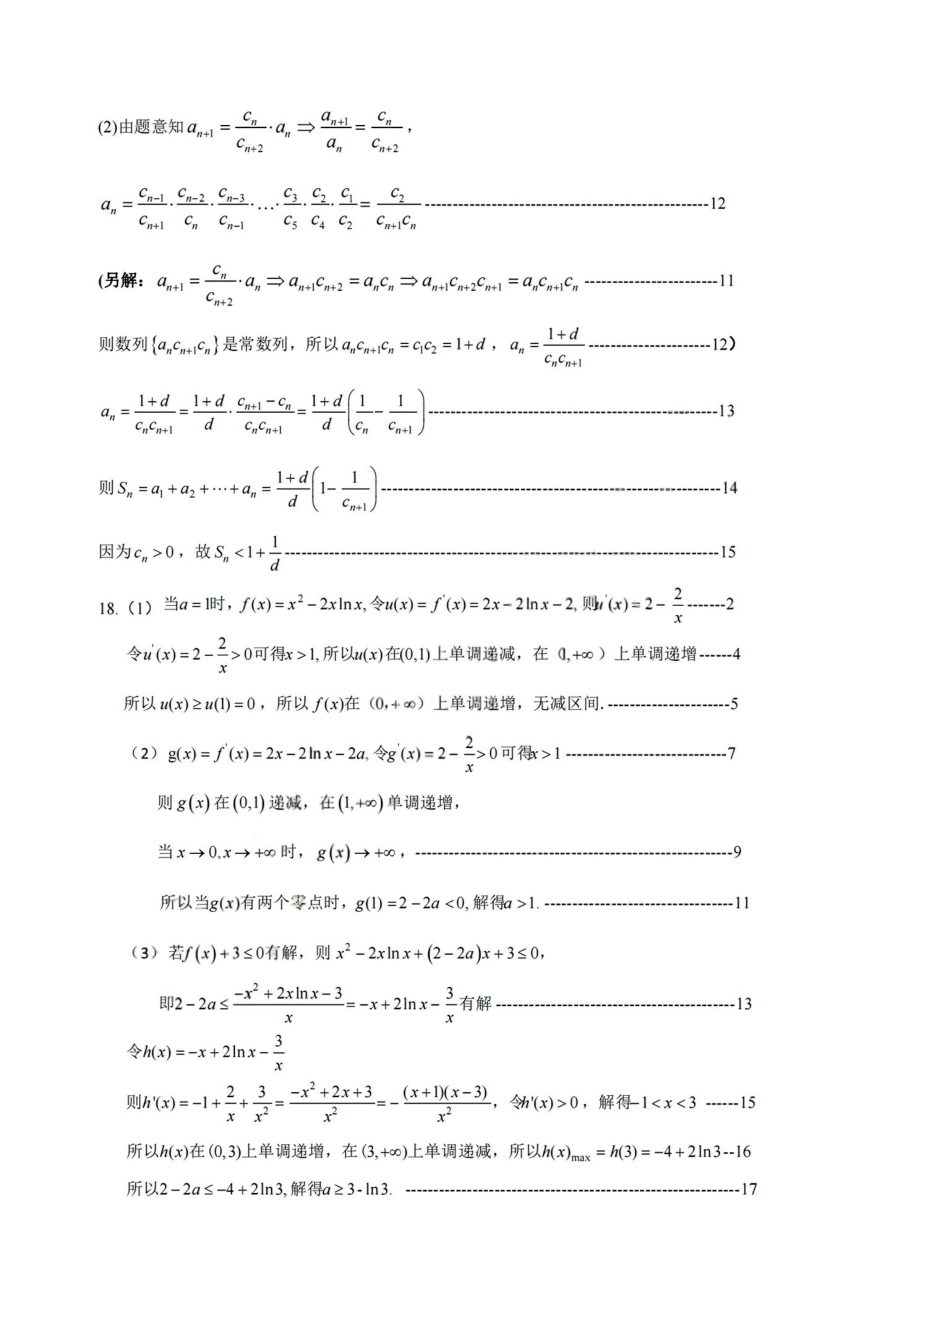 (2)由题意知 a_{n+1} = \frac{c_n}{c_{n+2}} · a_n ⇒ \frac{a_{n+1}}{a_n} = \frac{c_n}{c_{n+2}}，
a_n = \frac{c_{n-1}}{c_{n+1}} · \frac{c_{n-2}}{c_n} · \frac{c_{n-3}}{c_{n-1}} · … · \frac{c_3}{c_5} · \frac{c_2}{c_4} · \frac{c_1}{c_2} = \frac{c_2}{c_{n+1}c_n} ------12
(另解：a_{n+1} = \frac{c_n}{c_{n+2}} · a_n ⇒ a_{n+1}c_{n+2} = a_nc_n ⇒ a_{n+1}c_{n+2}c_{n+1} = a_nc_{n+1}c_n ------11
则数列{a_nc_{n+1}c_n}是常数列，所以 a_nc_{n+1}c_n = c_1c_2 = 1+d，a_n = \frac{1+d}{c_nc_{n+1}} ------12)
a_n = \frac{1+d}{c_nc_{n+1}} = \frac{1+d}{d} · \frac{c_{n+1}-c_n}{c_nc_{n+1}} = \frac{1+d}{d}(\frac{1}{c_n} - \frac{1}{c_{n+1}}) ------13
则 S_n = a_1 + a_2 + ⋯ + a_n = \frac{1+d}{d}(1 - \frac{1}{c_{n+1}}) ------14
因为 c_n > 0，故 S_n < 1 + \frac{1}{d} ------15
18.（1）当a = 1时，f(x) = x² - 2x ln x, 令u(x) = f'(x) = 2x - 2ln x - 2, 则u'(x) = 2 - \frac{2}{x} ------2
令u'(x) = 2 - \frac{2}{x} > 0可得x > 1, 所以u(x)在(0,1)上单调递减，在(1,+∞）上单调递增------4
所以 u(x) ≥ u(1) = 0，所以 f(x)在（0,+∞）上单调递增，无减区间. ------5
（2）g(x) = f'(x) = 2x - 2ln x - 2a, 令g'(x) = 2 - \frac{2}{x} > 0可得x > 1 ------7
则 g(x) 在 (0,1) 递减，在 (1,+∞) 单调递增，
当 x → 0, x → +∞ 时，g(x) → +∞， ------9
所以当g(x)有两个零点时，g(1) = 2 - 2a < 0, 解得a > 1. ------11
（3）若f(x) + 3 ≤ 0有解，则 x² - 2x ln x + (2 - 2a)x + 3 ≤ 0，
即2 - 2a ≤ \frac{-x² + 2x ln x - 3}{x} = -x + 2ln x - \frac{3}{x}有解 ------13
令h(x) = -x + 2ln x - \frac{3}{x}
则h'(x) = -1 + \frac{2}{x} + \frac{3}{x²} = \frac{-x² + 2x + 3}{x²} = -\frac{(x+1)(x-3)}{x²}，令h'(x) > 0，解得-1 < x < 3 ------15
所以h(x)在(0,3)上单调递增，在(3,+∞)上单调递减，所以h(x)_{max} = h(3) = -4 + 2ln3--16
所以2 - 2a ≤ -4 + 2ln3, 解得a ≥ 3 - ln3. ------17